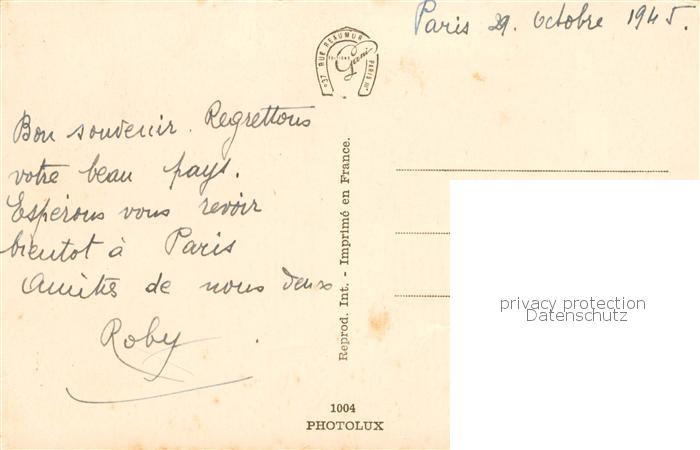 Paris 29. Octobre 1945.
37, RUE REAUMUR PARIS IIIe
EDITIONS
Bon souvenir. Regrettons
votre beau pays.
Espérons vous revoir
bientot à Paris
Amitiés de nous deux
Roby
Reprod. Int. - Imprimé en France.
1004
PHOTOLUX
privacy protection
Datenschutz